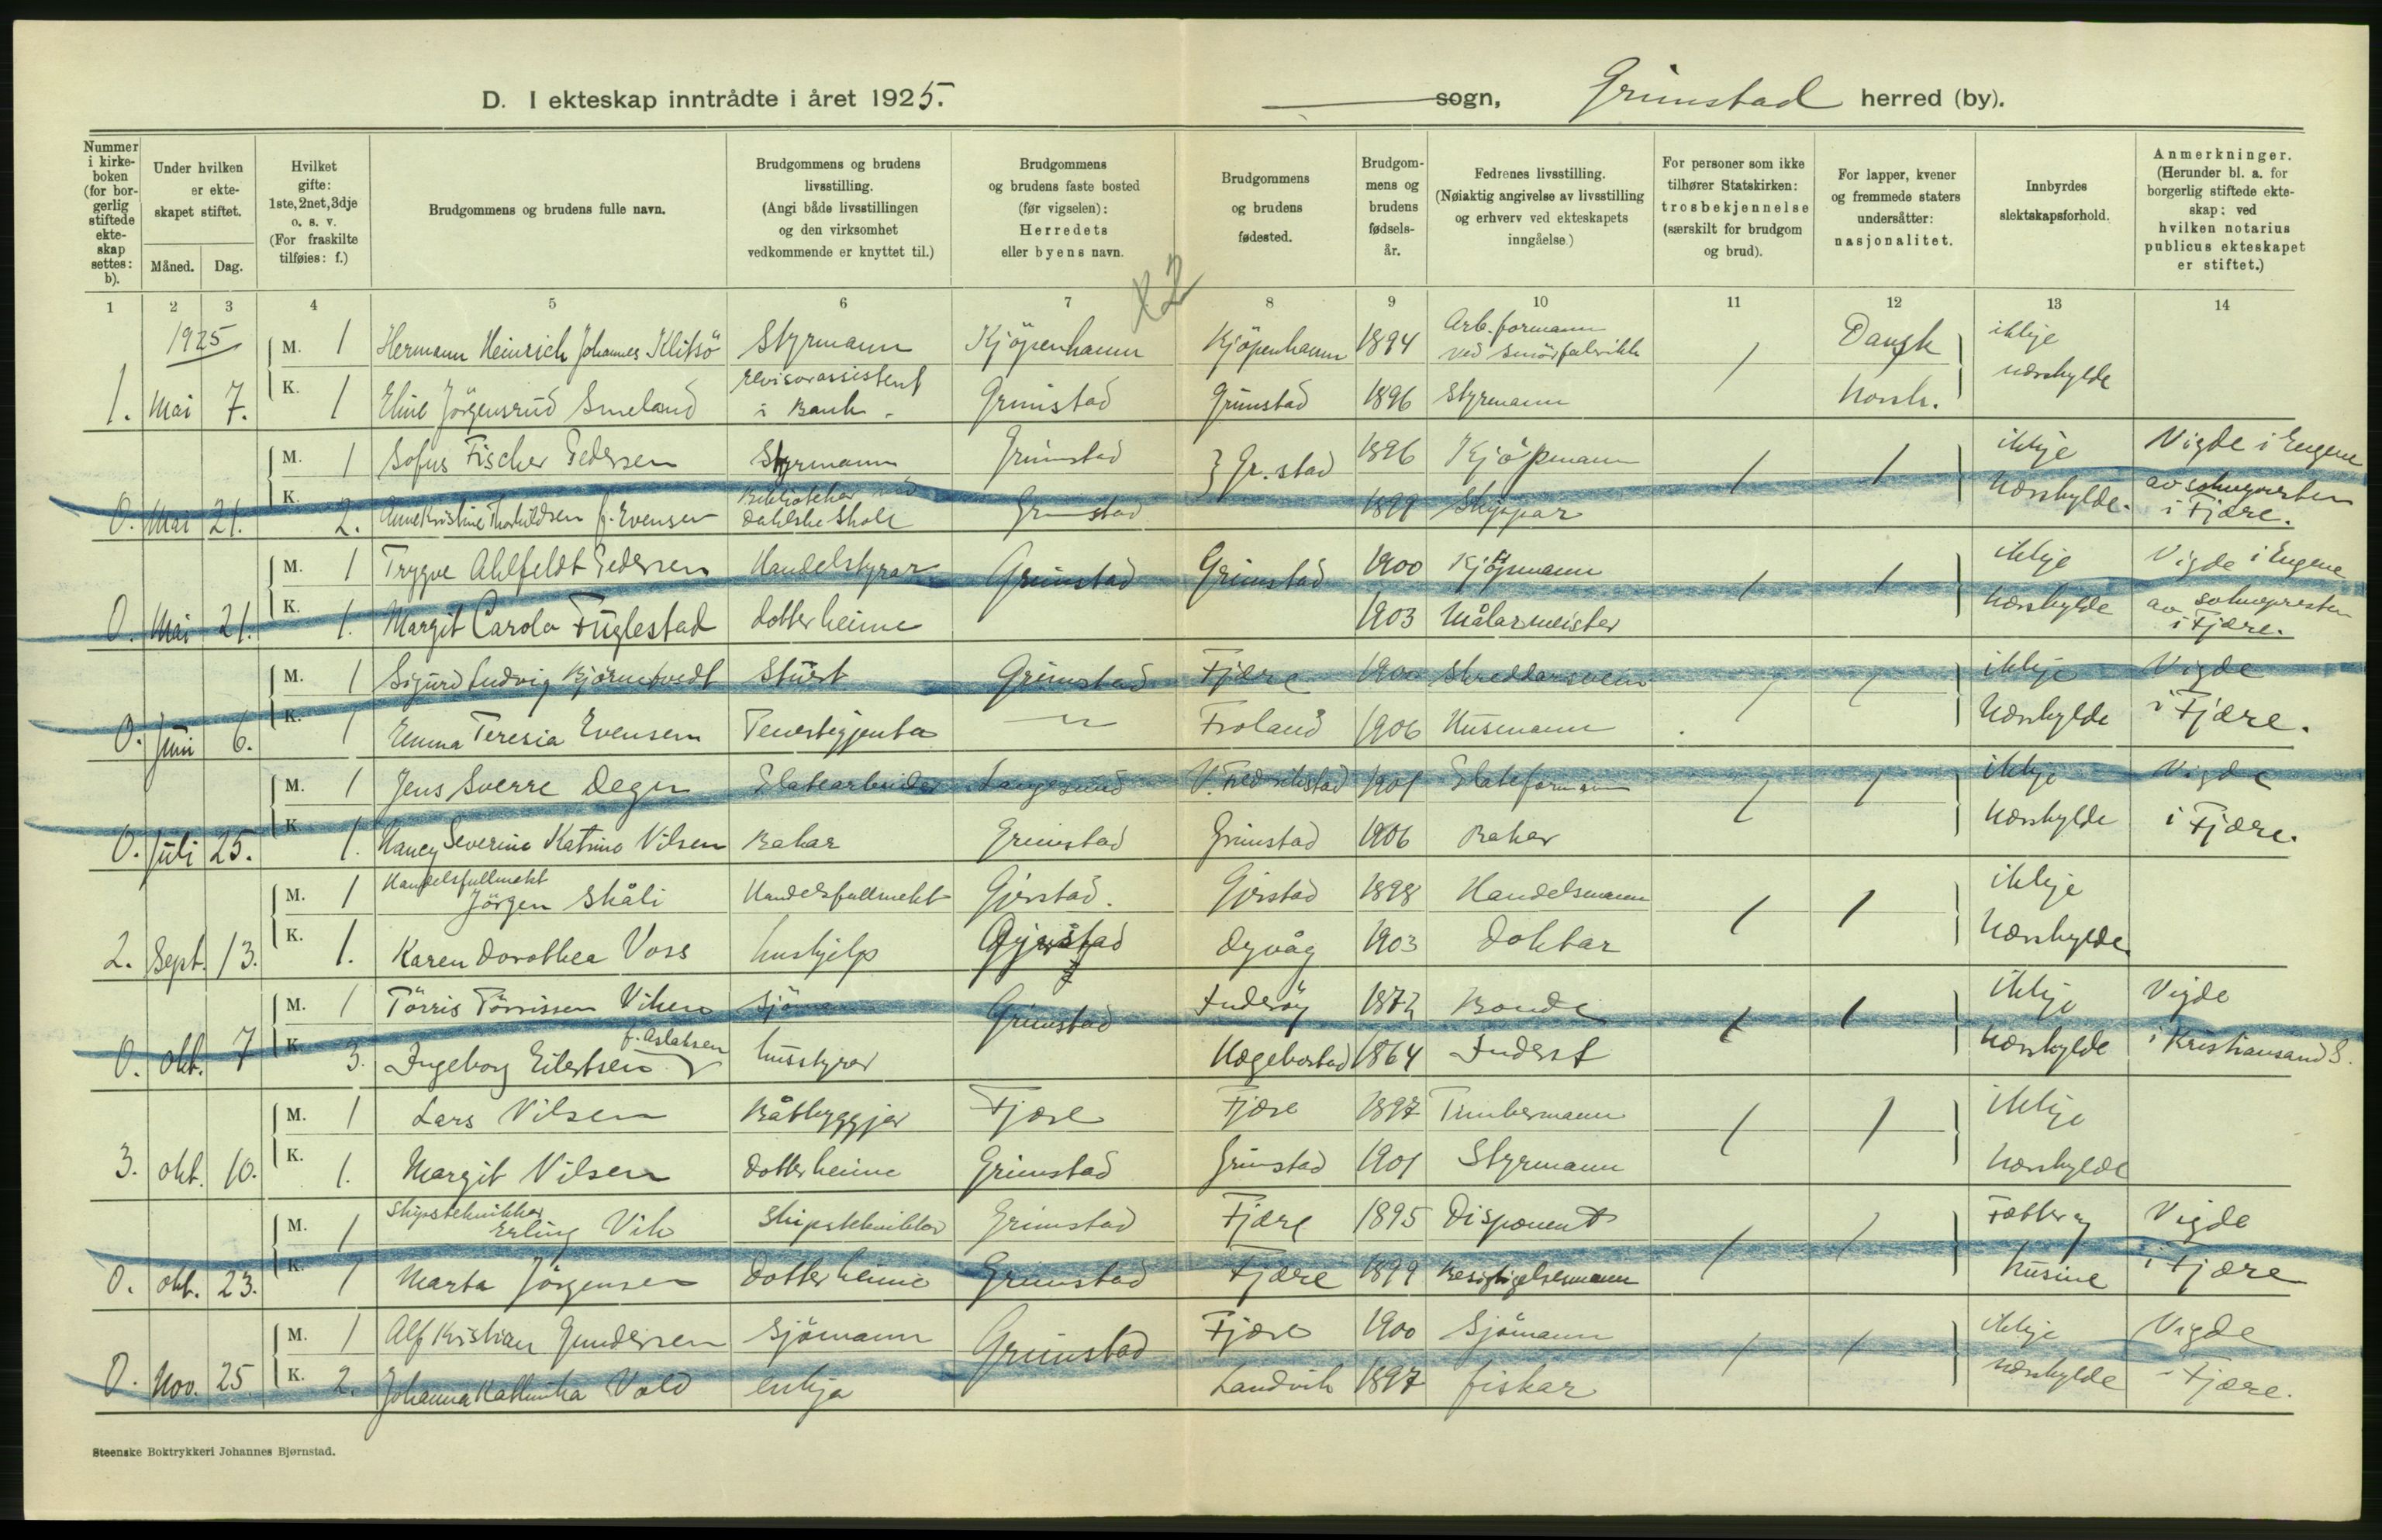 D. I ekteskap inntrådte i året 1925.
sogn, Grimstad herred (by).
Nummer i kirkeboken (for borgerlig stiftede ekteskap settes: b).
Under hvilken er ekteskapet stiftet.
Måned. Dag.
Hvilket gifte: 1ste, 2net, 3dje o. s. v. (For fraskilte tilføies: f.)
Brudgommens og brudens fulle navn.
Brudgommens og brudens livsstilling. (Angi både livsstillingen og den virksomhet vedkommende er knyttet til.)
Brudgommens og brudens faste bosted (før vigselen): Herredets eller byens navn.
Brudgommens og brudens fødested.
Brudgommens og brudens fødselsår.
Fedrenes livsstilling. (Nøiaktig angivelse av livsstilling og erhverv ved ekteskapets inngåelse.)
For personer som ikke tilhører Statskirken: trosbekjennelse (særskilt for brudgom og brud).
For lapper, kvener og fremmede staters undersåtter: nasjonalitet.
Innbyrdes slektskapsforhold.
Anmerkninger. (Herunder bl. a. for borgerlig stiftede ekteskap: ved hvilken notarius publicus ekteskapet er stiftet.)
1 2 3 4 5 6 7 8 9 10 11 12 13 14
x2
1925
M. 1 Hermann Heinrich Johannes Klitsö Styrmann Kjöpenhamn Kjöpenhamn 1894 Arb.formann ved smörfabrikk / Dansk ikkje
1. Mai 7. K. 1 Eline Jörgensrud Smeland revisorassistent i Bank. Grimstad Grimstad 1896 Styrmann Norsk. nærskylde
M. 1 Sofus Fischer Pedersen Styrmann Grimstad } Gr.stad 1896 Kjöpmann / / ikkje Vigde i Eugene
0. Mai 21. K. 2. Anne Kristine Thorkildsen f. Evensen Bibliotekar ved Dahlske Skole Grimstad 1899 Skippar nærskylde. av soknepresten i Fjære.
M. 1 Trygve Ahlfeldt Pedersen Handelstyrar Grimstad Grimstad 1900 Kjöpmann / / ikkje Vigde i Eugene
0. Mai 21. K. 1. Margit Carola Fuglestad dotter heime 1903 Målarmeister nærskylde av soknepresten i Fjære.
M. 1 Sigurd Ludvig Bjørnetvedt Stuert Grimstad Fjære 1900 Skreddarsvein / / ikkje Vigde
0. Juni 6. K. 1 Emma Teresia Evensen Tenestegjenta — " — Froland 1906 Husmann nærskylde i Fjære.
M. 1 Jens Sverre Degn Platearbeidar Langesund V. Fredrikstad 1901 Plateformann / / ikkje Vigde
0. Juli 25. K. 1. Nancy Severine Katrine Nilsen Bakar Grimstad Grimstad 1906 Bakar nærskylde i Fjære.
M. 1 Handelsfullmekt Jörgen Skåli Handelsfullmekt Gjerstad. Gjerstad 1898 Handelsmann / / ikkje
2. Sept. 13. K. 1. Karen Dorothea Voss hushjelp Gjerstad Dypvåg 1903 Doktar nærskylde
M. 1 Törris Törrissen Viken Sjömann Grimstad Inderöy 1872 Bonde / / ikkje Vigde
0. okt. 7 K. 3. Ingeborg Eilertsen f. Aslaksen husstyrar Hægebostad 1864 Inderst nærskylde i Kristiansand S.
M. 1 Lars Nilsen Båtbyggjar Fjære Fjære 1897 Timbermann / / ikkje
3. okt. 10. K. 1. Margit Nilsen dotter heime Grimstad Grimstad 1901 Styrmann nærskylde
M. 1 Skipsteknikkar Erling Vik Skipsteknikkar Grimstad Fjære 1895 Disponent / / Fætter og Vigde
0. okt. 23. K. 1 Marta Jörgensen Dotter heime Grimstad Fjære 1899 Besigtigelsesmann kusine i Fjære
M. 1 Alf Kristian Gundersen Sjömann Grimstad Fjære 1900 Sjömann / / ikkje Vigde
0. Nov. 25. K. 2. Johanna Kathinka Vold enkja Landvik 1897 fiskar nærskylde i Fjære.
Steenske Boktrykkeri Johannes Bjørnstad.